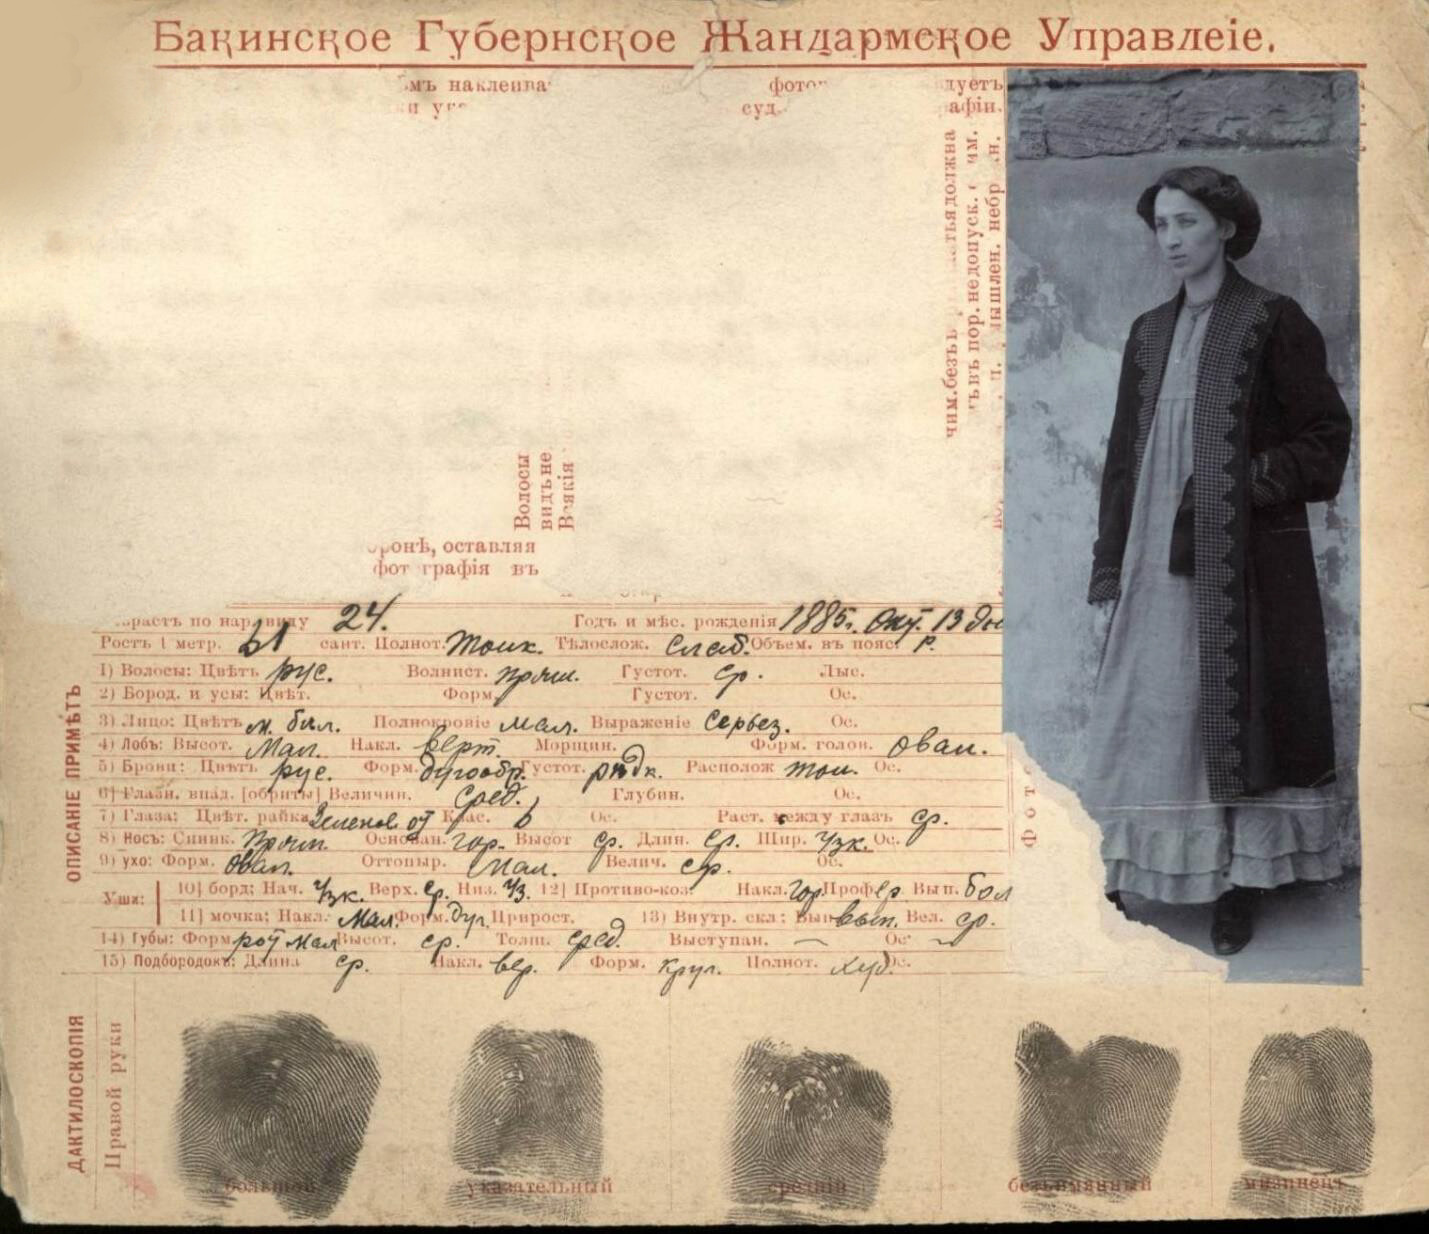 Бакинское Губернское Жандармское Управлеіе.
наклеива
фото
дуетъ
суд.
афіи.
тьядолжна
чим.безъ
им.
недопуск.
въ пор.
н.
небр
ышлен.
Волосы
видъ не
Всякія
онѣ, оставляя
фот графія въ
растъ по нар. виду 24. Годъ и мѣс. рожденія 1885г. Окт. 13 дня
Ростъ 1 метр. 51 сант. Полнот. Тонк. Тѣлослож. Слаб. Объем. въ пояс. Р.
1) Волосы: Цвѣтъ рус. Волнист. прям. Густот. ср. Лыс.
2) Бород. и усы: Цвѣт. Форм. Густот. Ос.
3) Лицо: Цвѣтъ м. бѣл. Полнокровіе мал. Выраженіе серьез. Ос.
4) Лобъ: Высот. Мал. Накл. верт. Морщин. Форм. голов. овал.
5) Брови: Цвѣтъ рус. Форм. дугообр. Густот. рѣдк. Располож Ос.
6] Глазн. впад. [обриты] Величин. сред. Глубин. Ос.
7) Глаза: Цвѣт. райка Зеленов. от Клас. 6 Ос. Раст. между глазъ ср.
8) Носъ: Спинк. Прям. Основан. гор. Высот ср. Длин. ср. Шир. Узк. Ос.
9) ухо: Форм. овал. Оттопыр. Мал. Велич. ср. Ос.
Уши: 10] борд: Нач. Узк. Верх. ср. Низ. Уз. 12] Противо-коз Накл. Гор. Проф. ср Вып. бол
11] мочка; Накл. Мал. Форм. дуг. Прирост. 13) Внутр. скл: Вып вып. Вел. ср.
14) Губы: Форм рот мал Высот. ср. Толщ. сред. Выступан. — Ос —
15) Подбородокъ: Длина ср. Накл. вер. Форм. круг. Полнот. худ. Ос.
ОПИСАНІЕ ПРИМѢТЪ
Фото
ДАКТИЛОСКОПІЯ
Правой руки
большой указательный средній безъимянный мизинецъ